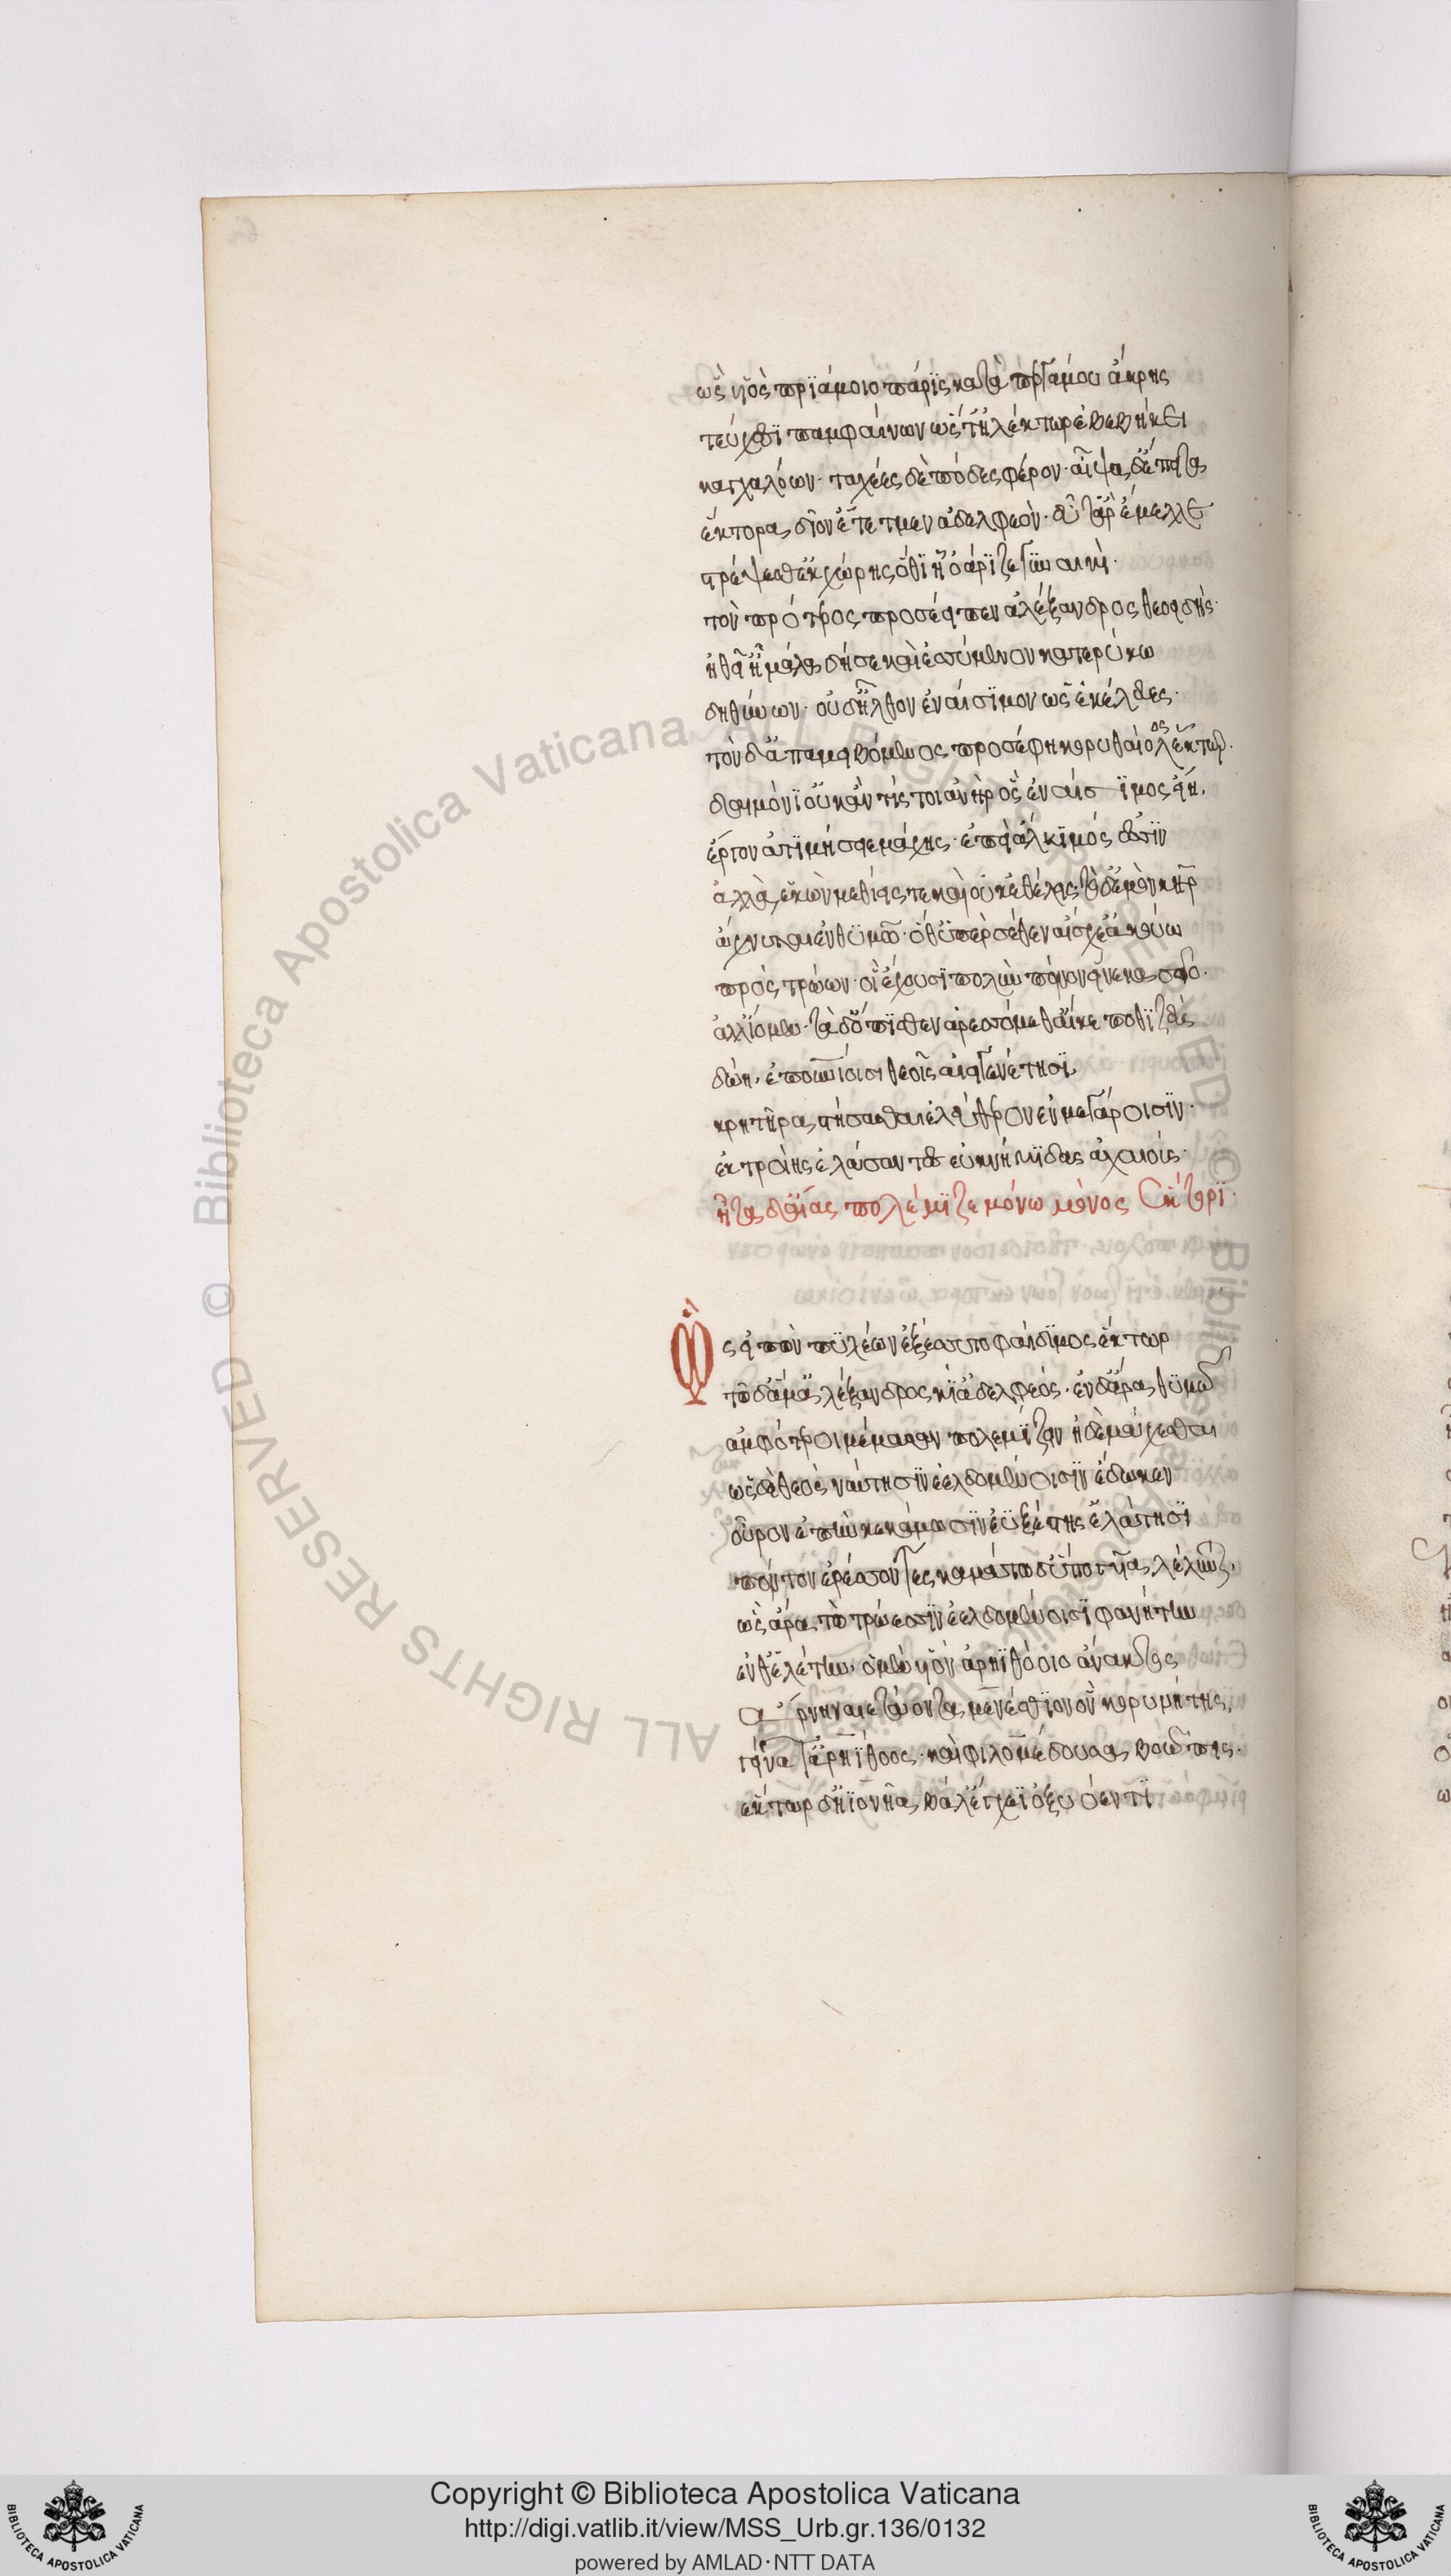 ὣς υἱὸς πρϊάμοιο πάρϊς κατὰ περγάμου ἄκρης
τεύχεσϊ παμφαίνων ὥς τ' ἠλέκτωρ ἐβεβήκει
καγχαλόων· ταχέες δὲ πόδες φέρον· αἶψα δ' ἔπειτα
ἕκτορα δῖον ἔτετμεν ἀδελφεόν· εὖτ' ἂρ ἔμελλε
τρέψεσθ' ἐκ χώρης ὅθϊ ᾗ ὀάρϊζε γϋναικί·
τὸν πρότερος προσέειπεν ἀλέξανδρος θεοειδής·
ἠθεῖ' ἦ μάλα δή σε καὶ ἐσσύμενον κατερύκω
δηθύνων· οὐδ' ἦλθον ἐναίσϊμον ὡς ἐκέλευες·
τὸν δ' ἀπαμειβόμενος προσέφη κορυθαίολος ἕκτωρ·
δαιμόνϊ' οὐκ ἄν τίς τοι ἀνὴρ ὃς ἐναίσϊμος εἴη.
ἔργον ἀτϊμήσειε μάχης· ἐπεὶ ἄλκϊμός ἐσσϊν
ἀλλὰ ἑκὼν μεθίεις τε καὶ οὐκ ἐθέλεις· τὸ δ' ἐμὸν κῆρ
ἄχνυται ἐν θϋμῷ· ὅθ' ὑπὲρ σέθεν αἴσχε' ἀκούω
πρὸς τρώων· οἳ ἔχουσϊ πολὺν πόνον εἵνεκα σεῖο·
ἀλλ' ἴομεν· τὰ δ' ὄπϊσθεν ἀρεσσόμεθ' αἴ κέ ποθϊ ζεὺς
δώῃ. ἐπουρανίοισι θεοῖς αἰειγενέτησϊ.
κρητῆρα στήσασθαι ἐλεύθερον ἐν μεγάροισϊν·
ἐκ τροίης ἐλάσαντας ἐϋκνήμϊδας ἀχαιούς·
ἦτα δ' αἴας πολέμϊζε μόνω μόνος ἕκτορϊ·
Ὣς εἰπὼν πϋλέων ἐξέσσυτο φαίδϊμος ἕκτωρ
τῷ δ' ἅμ' ἀλέξανδρος κί' ἀδελφεός· ἐν δ' ἄρα θϋμῷ
ἀμφότεροι μέμασαν πολεμίζειν ἠδὲ μάχεσθαι
ὡς δὲ θεὸς ναύτησϊν ἐελδομένοισϊν ἔδωκεν
οὖρον ἐπὴν κεκάμωσϊν ἐϋξέστης ἐλάτησϊ
πόντον ἐρέσσοντες καμάτω δ' ὑπὸ γυῖα λέλυνται.
ὣς ἄρα τὼ τρώεσσϊν ἐελδομένοισϊ φανήτην
ἔνθ' ἑλέτην. ὁ μὲν υἱὸν ἀρηϊθόοιο ἄνακτος
ἄρνη ναιετάοντα μενέσθϊον ὃν κορυνήτης
γείνατ' ἀρηΐθοος· καὶ φιλομέδουσα βοῶπις·
ἕκτωρ δ' ἠϊονῆα βάλ' ἔγχεϊ ὀξυόεντϊ
Copyright © Biblioteca Apostolica Vaticana
http://digi.vatlib.it/view/MSS_Urb.gr.136/0132
powered by AMLAD·NTT DATA